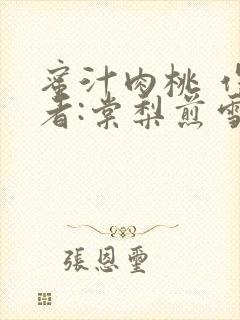 蜜汁肉桃 作
者:棠梨煎雪
張恩璽